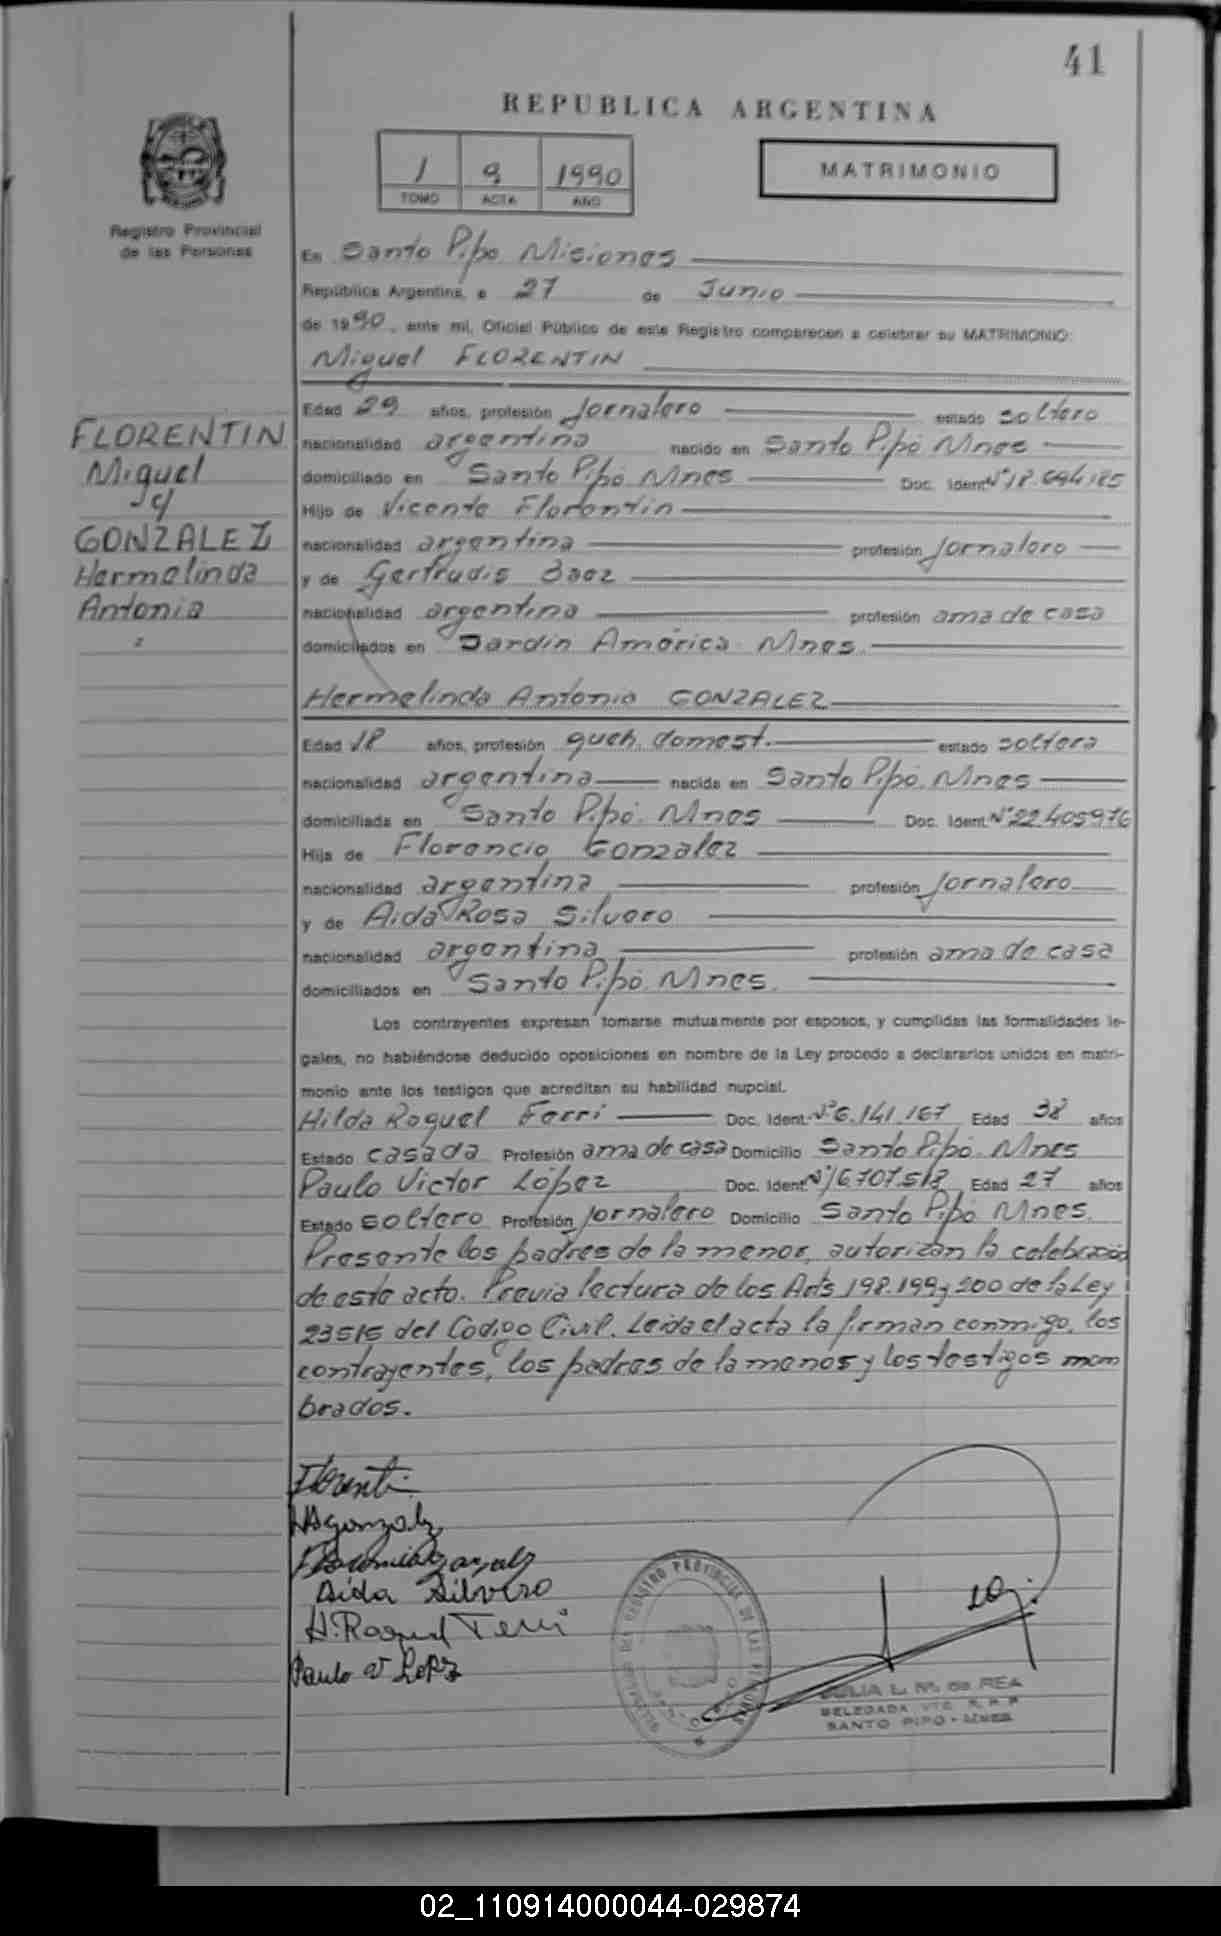 41
REPUBLICA ARGENTINA
1 9 1990
TOMO ACTA AÑO
MATRIMONIO
Registro Provincial
de las Personas
En Santo Pipó Misiones
República Argentina, a 27 de Junio
de 1990, ante mí, Oficial Público de este Registro comparecen a celebrar su MATRIMONIO:
Miguel FLORENTIN
FLORENTIN
Miguel
y
GONZALEZ
Hermelinda
Antonia
Edad 29 años, profesión Jornalero estado soltero
nacionalidad argentina nacido en Santo Pipó Mnes
domiciliado en Santo Pipó Mnes Doc. Ident. Nº 18.694.185
Hijo de Vicente Florentín
nacionalidad argentina profesión Jornalero
y de Gertrudis Baez
nacionalidad argentina profesión ama de casa
domiciliados en Jardín América Mnes.
Hermelinda Antonia GONZALEZ
Edad 18 años, profesión queh. domest. estado soltera
nacionalidad argentina nacida en Santo Pipó. Mnes
domiciliada en Santo Pipó. Mnes Doc. Ident. Nº 22.405976
Hija de Florencio Gonzalez
nacionalidad argentina profesión Jornalero
y de Aida Rosa Silvero
nacionalidad argentina profesión ama de casa
domiciliados en Santo Pipó. Mnes.
Los contrayentes expresan tomarse mutuamente por esposos, y cumplidas las formalidades le-
gales, no habiéndose deducido oposiciones en nombre de la Ley procedo a declararlos unidos en matri-
monio ante los testigos que acreditan su habilidad nupcial.
Hilda Raquel Ferri Doc. Ident. Nº 6.141.167 Edad 38 años
Estado casada Profesión ama de casa Domicilio Santo Pipó. Mnes
Paulo Victor López Doc. Ident. Nº 16.707.518 Edad 27 años
Estado soltero Profesión Jornalero Domicilio Santo Pipó Mnes.
Presente los padres de la menor, autorizan la celebración
de este acto. Previa lectura de los Arts 198.199 y 200 de la Ley
23515 del Código Civil. Leida el acta la firman conmigo, los
contrayentes, los padres de la menor y los testigos nom
brados.
Florenti
HAgonzalz
Aida Silvero
H. Raquel Ferri
Paulo V Lopz
JULIA L. M. de REA
DELEGADA
SANTO PIPO - MNES
02_110914000044-029874